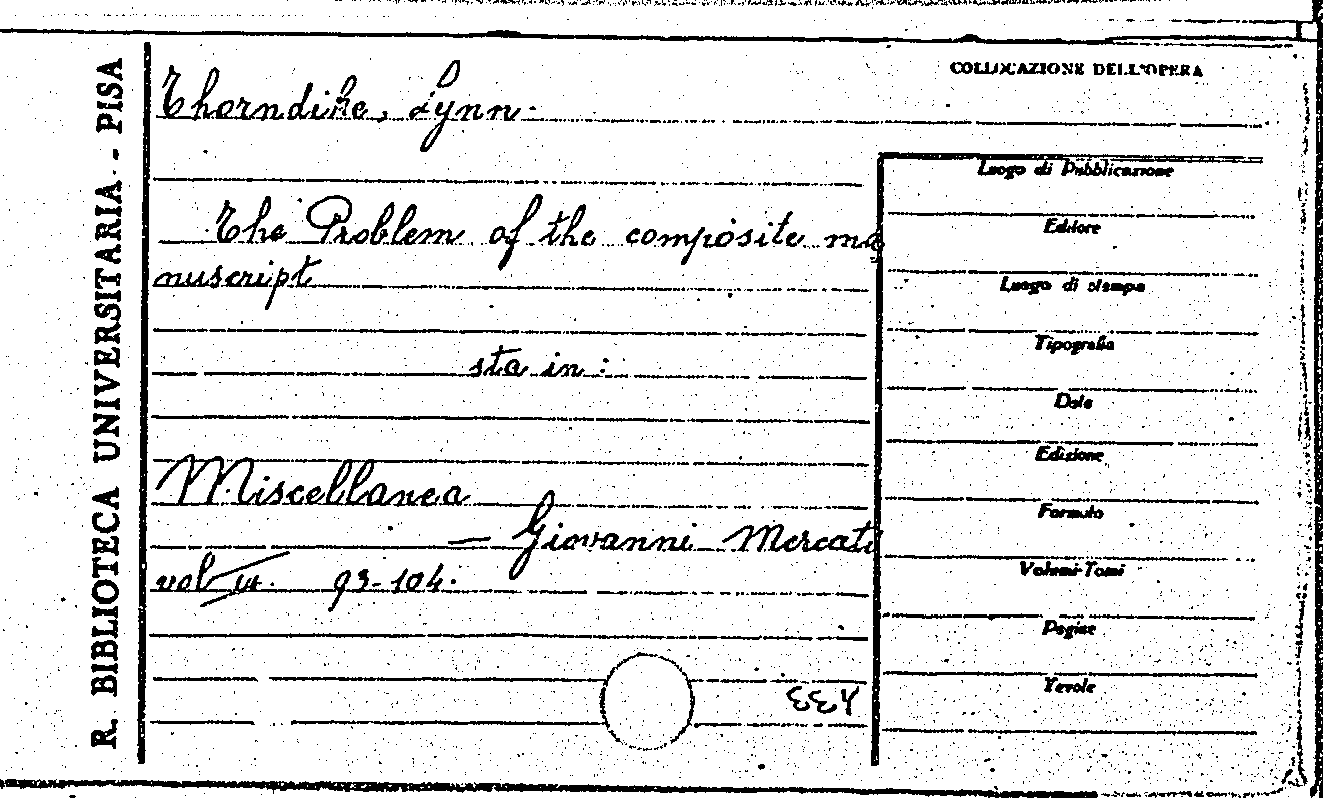 R. BIBLIOTECA UNIVERSITARIA - PISA
COLLOCAZIONE DELL'OPERA
Thorndike, Lynn.
The Problem of the composite ma
nuscript
sta in :
Miscellanea
— Giovanni Mercati
vol 93-104.
Luogo di Pubblicazione
Editore
Luogo di stampa
Tipografia
Data
Edizione
Formato
Volumi-Tomi
Pagine
Tavole